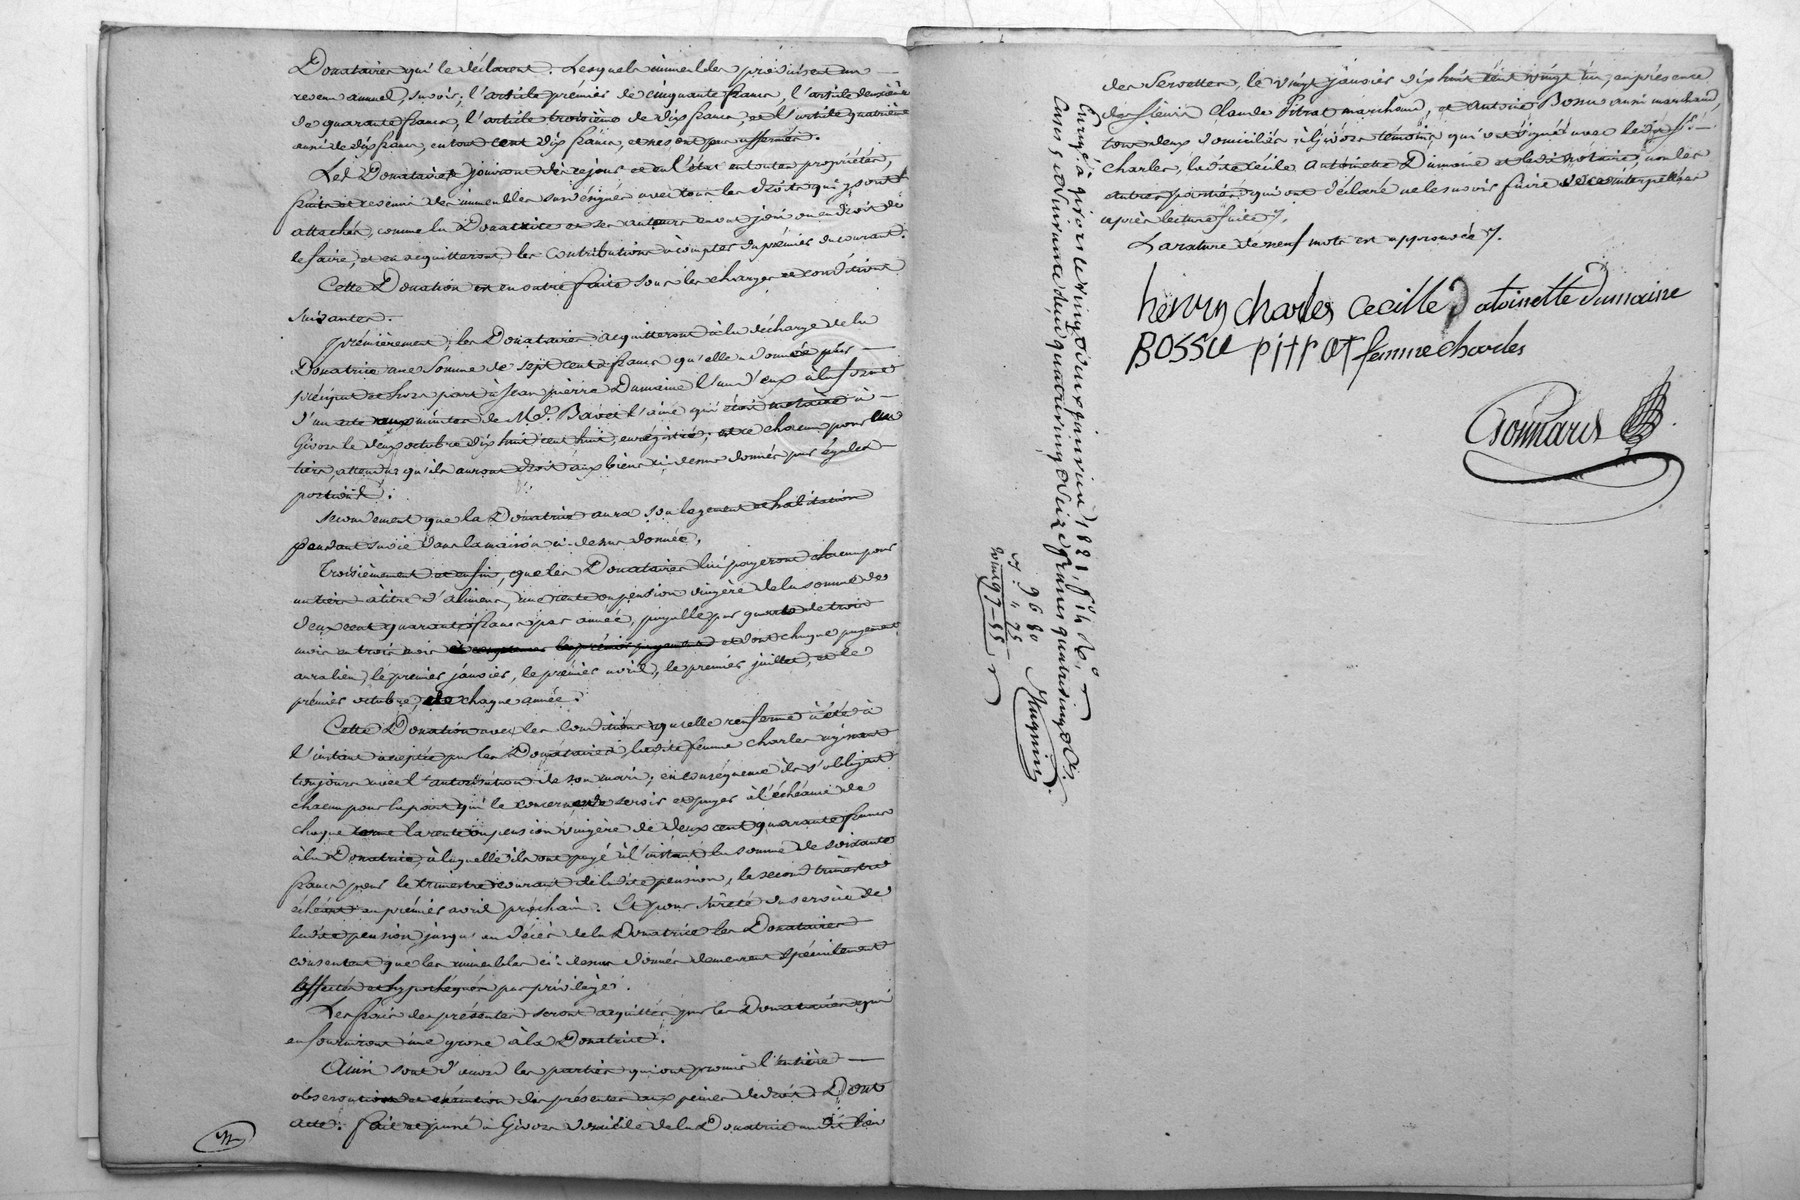 Donataires qui le déclarent. Lesquels immeubles produisent un
revenu annuel, savoir; l'article prémier de cinquante francs, l'article deuxième
de quarante francs, l'article troisième de dix francs, et l'article quatrième
aussi de dix francs, en tout cent dix francs, et ne sont pas affermés.
Les Donataires jouiront dès ce jour et en l'état en toute propriété,
fruits et revenus des immeubles susdésignés avec tous les droits qui y sont
attachés, comme la Donatrice et ses auteurs en ont joui ou eu droit de
le faire, et en acquitteront les contributions à compter du prémier du courant.
Cette Donation est en outre faite sous les charges et conditions
suivantes.
prémièrement, les Donataires acquitteront à la décharge de la
Donatrice une somme de sept cents francs qu'elle a donnée par
préciput et hors part à Jean pierre Dumaine l'un d'eux à la forme
d'un acte aux minutes de Me. Bavet l'ainé qui étoit notaire à
Givors le deux octobre dix huit cent huit, enrégistré; et ce chacun pour un
tiers, attendu qu'ils auront droit aux biens ci-dessus donnés par égales
portions.
secondement que la Donatrice aura son logement et habitation
pendant sa vie dans la maison ci-dessus donnée,
Troisièmement et enfin, que les Donataires lui payeront chacun pour
un tiers à titre d'alimens, une rente ou pension viagère de la somme de
deux cent quarante francs par année, payable par quarts de trois
mois en trois mois et dont chaque payement
aura lieu, le premier janvier, le prémier avril, le premier juillet, et le
prémier octobre, de chaque année.
Cette Donation avec les conditions qu'elle renferme a été à
l'instant acceptée par les Donataires ladite femme charles agissant
toujours avec l'autorisation de son mari; en conséquence ils s'obligent
chacun pour la part qui le concerne de servir et payer à l'échéance de
chaque terme la rente ou pension viagère de deux cent quarante francs
à la Donatrice, à laquelle ils ont payé à l'instant la somme de soixante
francs pour le trimestre courant de ladite pension, le second trimestre
échéant au prémier avril prochain. Et pour sûreté du service de
ladite pension jusqu'au décès de la Donatrice les Donataires
consentent que les immeubles ci-dessus donnés demeurent spécialement
affectés et hypothéqués par privilège.
Les frais des présentes seront acquittés par les Donataires qui
en fourniront une grosse à la Donatrice.
Ainsi sont d'accord les parties qui ont promis l'entière
observation et exécution des présentes aux peines de droit. Dont
acte. fait et passé à Givors domicile de la Donatrice au dit lieu
des Servettes, le vingt janvier dix huit cent vingt un, en présence
des sieurs Claude Pitrat marchand, et Antoine Bossu aussi marchand,
tous deux domiciliés à Givors témoins, qui ont signé avec ledit sr.
Charles, ladite Cécile Antoinette Dumaine et ledit notaire, non les
autres parties qui ont déclaré ne le savoir faire de ce interpellées
après lecture faite /.
La rature de neuf mots est approuvée /.
henry charles cecille antoinette dumaine
BOSSU pitrat femme charles
Gonnard
Enregé. à givors le vingt deux janvier 1821, fo. 14 Ro.
Cases 5 et suivantes reçu quatre vingt seize francs quatre vingt cts.
96 80
" 75
97-55